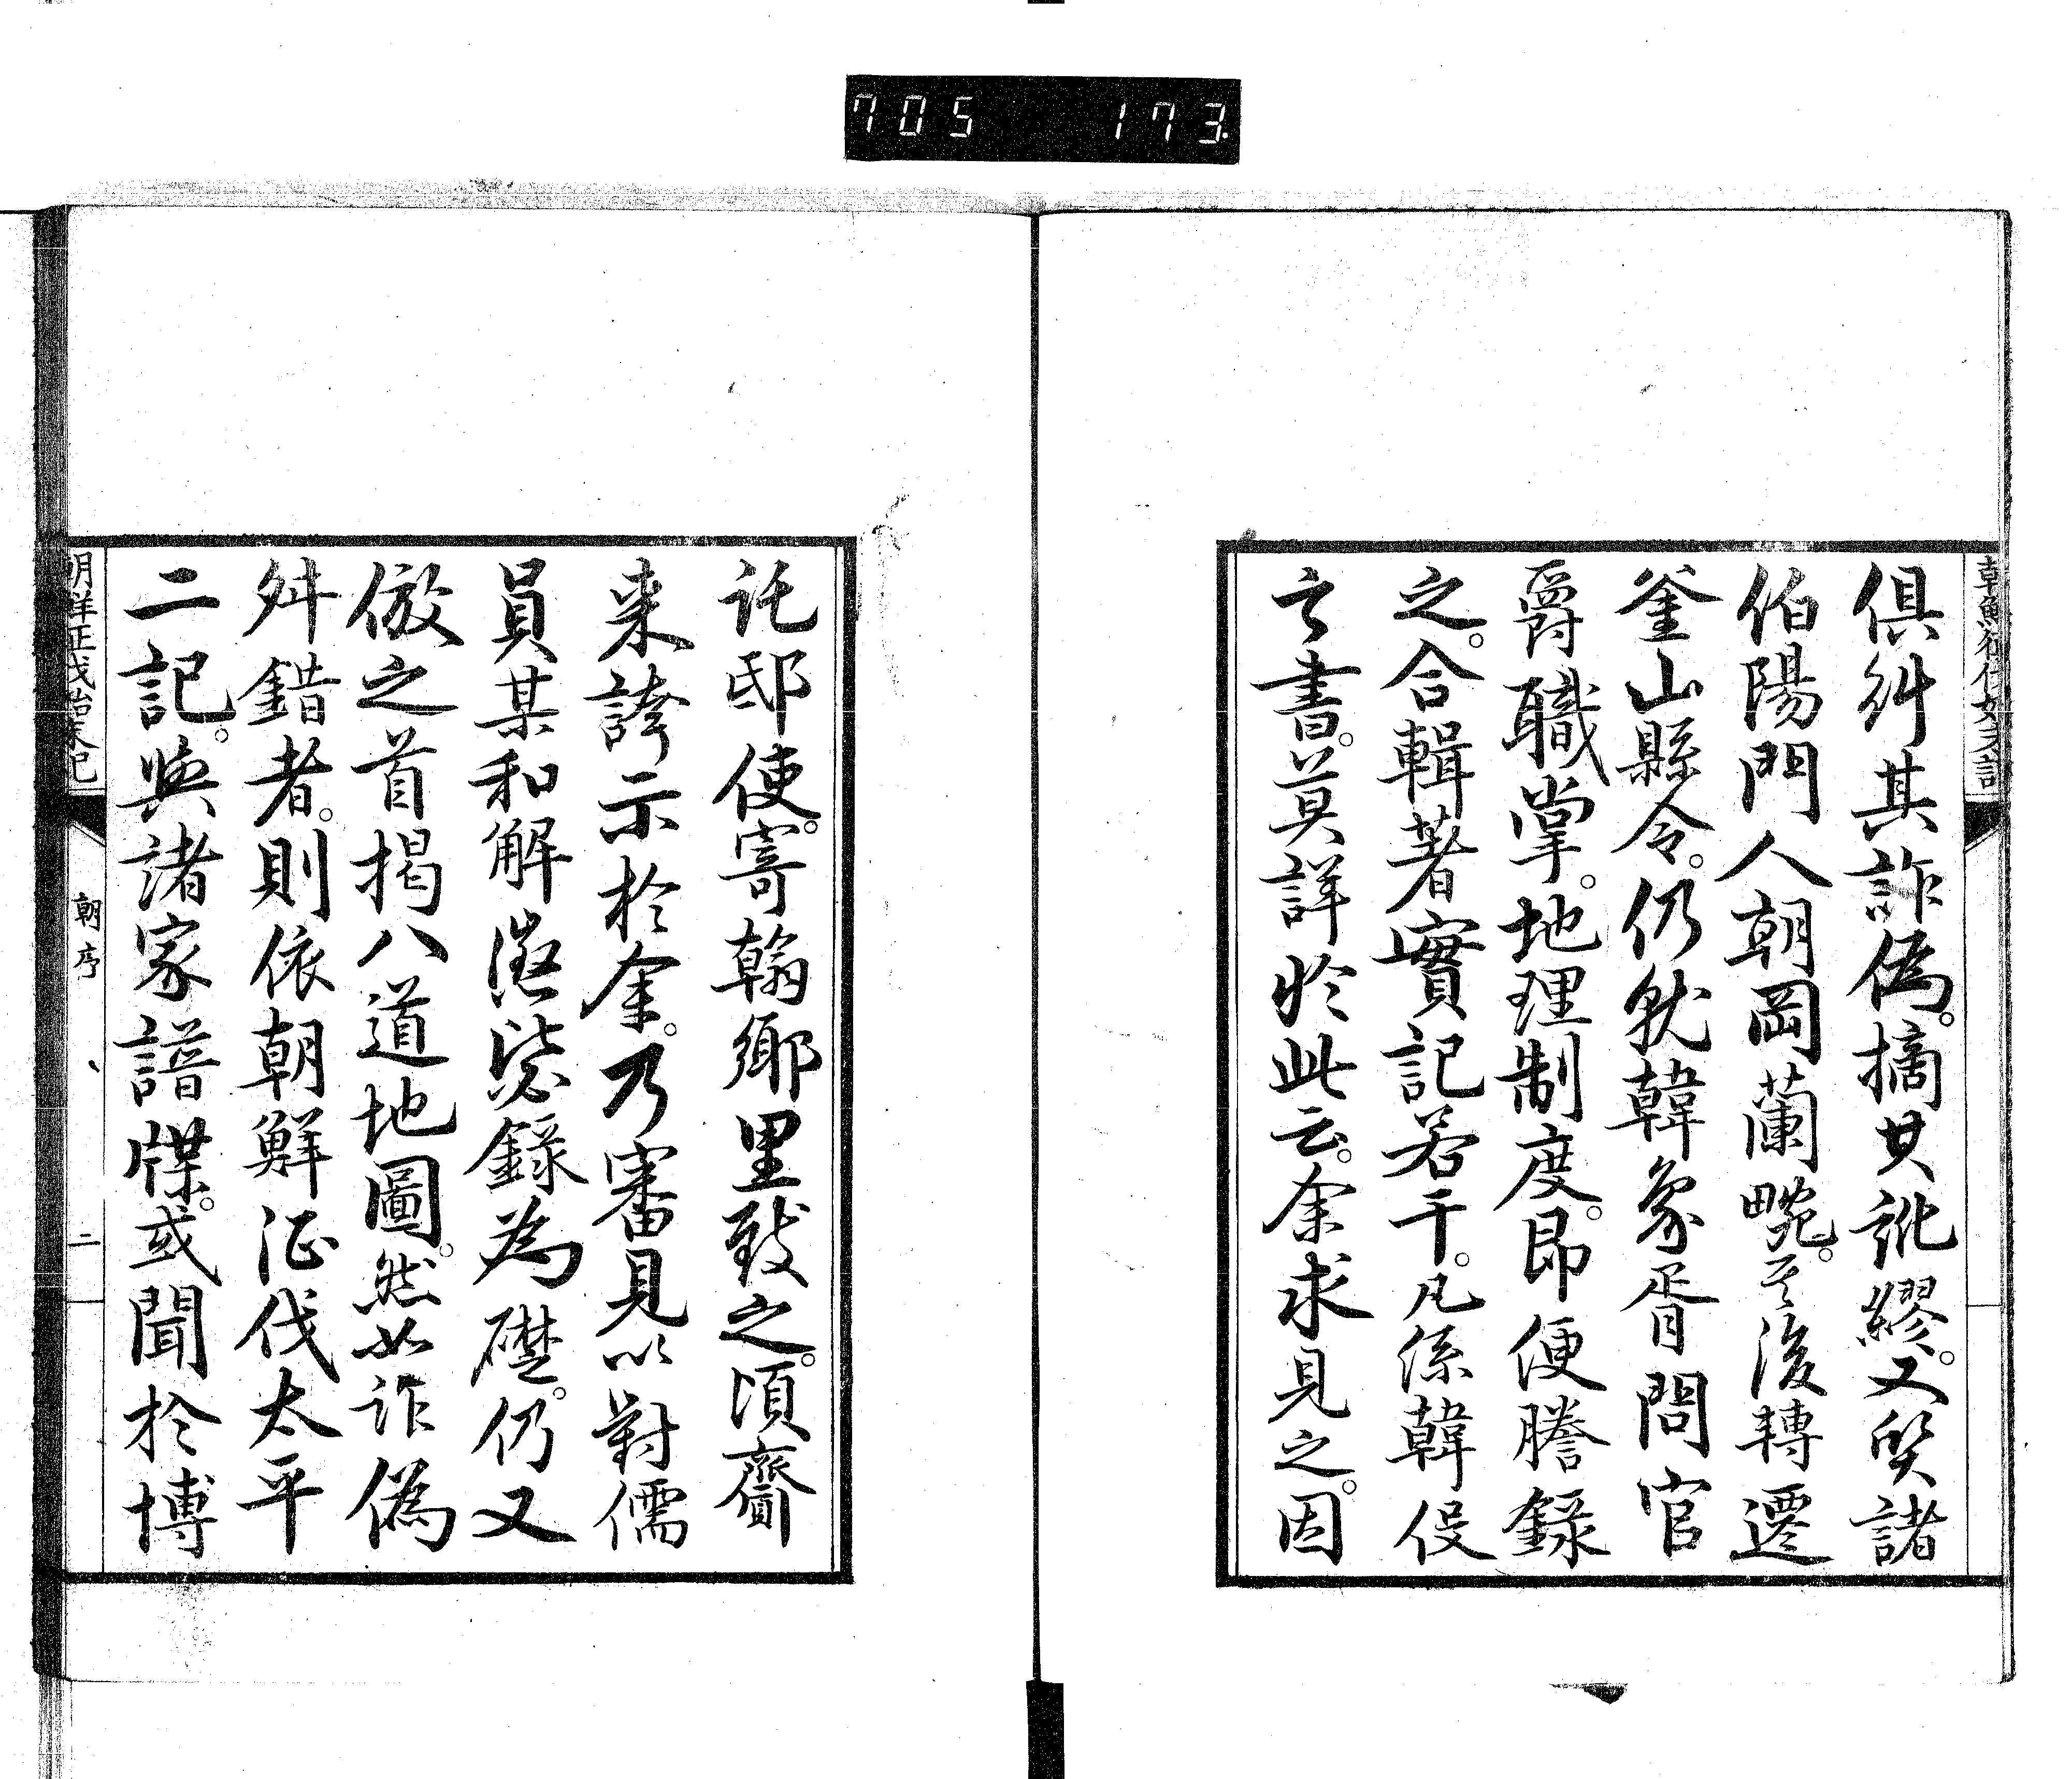 705 173
俱糾其詐偽。摘其訛繆。又質諸
伯陽門人朝岡蘭畹。其後轉遷
釜山縣令。仍就韓象胥問官
爵職掌。地理制度。即便謄錄
之。合輯著實記若干。凡係韓役
之書。莫詳於此云。余求見之。因
託邸使。寄翰鄉里致之。頃齎
来誇示於余。乃審見以對儒
員某和解懲毖錄為礎。仍又
倣之首揭八道地圖。然如詐偽
舛錯者。則依朝鮮征伐太平
二記。與諸家譜牒。或聞於博
朝序
二